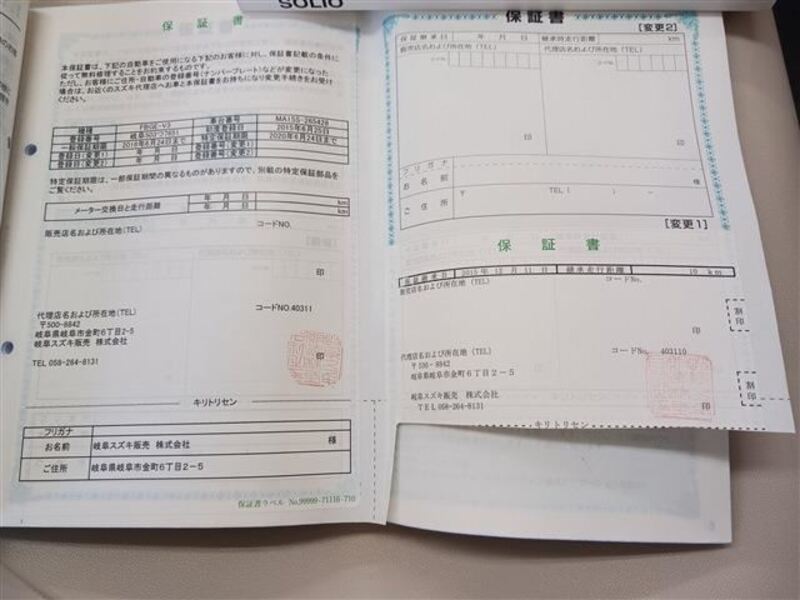 SOLIO
保証書
本保証書は、下記の自動車をご使用になる下記のお客様に対し、保証書記載の条件に
従って無料修理することをお約束するものです。
ただし、お客様にご住所・自動車の登録番号(ナンバープレート)などが変更になった
場合は、お近くのスズキ代理店へお車と本保証書をお持ちになり変更手続きをお受け
ください。
機種 車台番号 MA15S-265428
登録番号 初度登録日 2015年6月25日
一般保証期間 2018年6月24日まで 特定保証期限 2020年6月24日まで
登録日(変更1) 年 月 日 登録番号(変更1)
登録日(変更2) 年 月 日 登録番号(変更2)
特定保証期間は、一部保証期間の異なるものがありますので、別載の特定保証部品を
ご覧ください。
メーター交換日と走行距離 年 月 日 km
年 月 日 km
販売店名および所在地(TEL) コードNO.
印
代理店名および所在地(TEL) コードNO.40311
〒500-8842
岐阜県岐阜市金町6丁目2-5
岐阜スズキ販売 株式会社
TEL 058-264-8131
印
キリトリセン
フリガナ
お名前 岐阜スズキ販売 株式会社 様
ご住所 岐阜県岐阜市金町6丁目2-5
保証書ラベル No.99999-71116-710
保証書 [変更2]
保証継承日 年 月 日 継承時走行距離 km
販売店名および所在地(TEL) 代理店名および所在地(TEL)
印 印
フリガナ
お名前 様
ご住所 〒 TEL ( ) -
[変更1]
保証書
保証継承日 2015年 12月 11日 継承走行距離 10 km
販売店名および所在地(TEL) コードNo.
印
割印
代理店名および所在地(TEL) コードNo. 403110
〒500-8842
岐阜県岐阜市金町6丁目2-5
岐阜スズキ販売 株式会社
TEL 058-264-8131
印
割印
キリトリセン